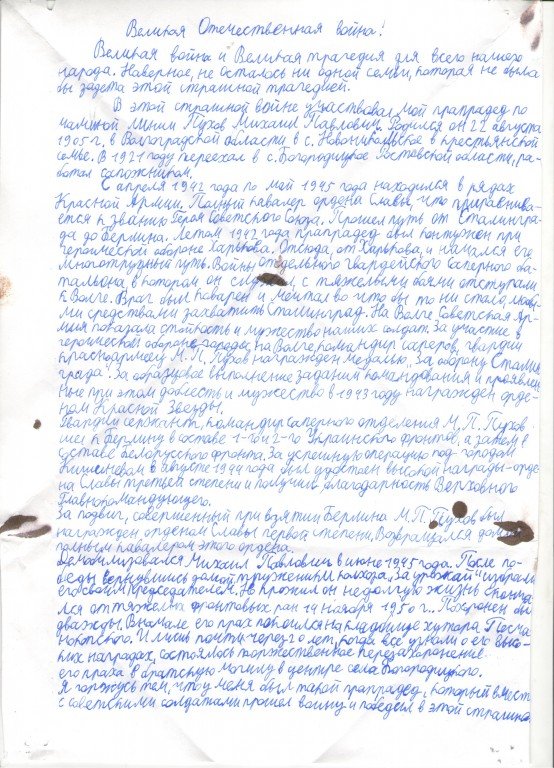 Великая Отечественная война!
Великая война и Великая трагедия для всего нашего
народа. Наверное, не осталось ни одной семьи, которая не была
бы задета этой страшной трагедией.
В этой страшной войне участвовал мой прапрадед по
маминой линии Пухов Михаил Павлович. Родился он 22 августа
1905 г. в Волгоградской области в с. Новоникольское в крестьянской
семье. В 1921 году переехал в с. Богородицкое Ростовской области, ра-
ботал сапожником.
С апреля 1942 года по май 1945 года находился в рядах
Красной Армии. Полный кавалер ордена Славы, что приравнива-
ется к званию Героя Советского Союза. Прошел путь от Сталингра-
да до Берлина. Летом 1942 года прапрадед был контужен при
героической обороне Харькова. Отсюда, от Харькова, и начался его
многотрудный путь. Войны отдельного гвардейского саперного ба-
тальона, в котором он служил, с тяжелыми боями отступали
к Волге. Враг был коварен и мечтал во что бы то ни стало любы-
ми средствами захватить Сталинград. На Волге Советская Ар-
мия показала стойкость и мужество наших солдат. За участие в
героической обороне города на Волге командир саперов, гвардии
красноармеец М. П. Пухов награжден медалью „За оборону Сталин-
града". За образцовое выполнение заданий командования и проявлен-
ные при этом доблесть и мужество в 1943 году награжден орде-
ном Красной Звезды.
Гвардии сержант, командир саперного отделения М. П. Пухов
шел к Берлину в составе 1-го и 2-го Украинского фронтов, а затем в
составе Белорусского фронта. За успешную операцию под городом
Кишиневом в августе 1944 года был удостоен высокой награды-орде-
на Славы третьей степени и получил благодарность Верховного
Главнокомандующего.
За подвиг, совершенный при взятии Берлина М. П. Пухов был
награжден орденом Славы первой степени. Возвращался домой
полным кавалером этого ордена.
Демобилизовался Михаил Павлович в июне 1945 года. После по-
беды вернувшись домой тружеником колхоза. За урожай и избрали
его своим председателем. Но прожил он недолгую жизнь скончал-
ся от тяжелых фронтовых ран 14 ноября 1950 г.. Похоронен был
дважды. Вначале его прах покоился на кладбище хутора Песча-
нокопского. И лишь почти через лет, когда все узнали о его высо-
ких наградах, состоялось торжественное перезахоронение
его праха в братскую могилу в центре села Богородицкого.
Я горжусь тем, что у меня был такой прапрадед, который вместе
с советскими солдатами прошел войну и победил в этой страшной